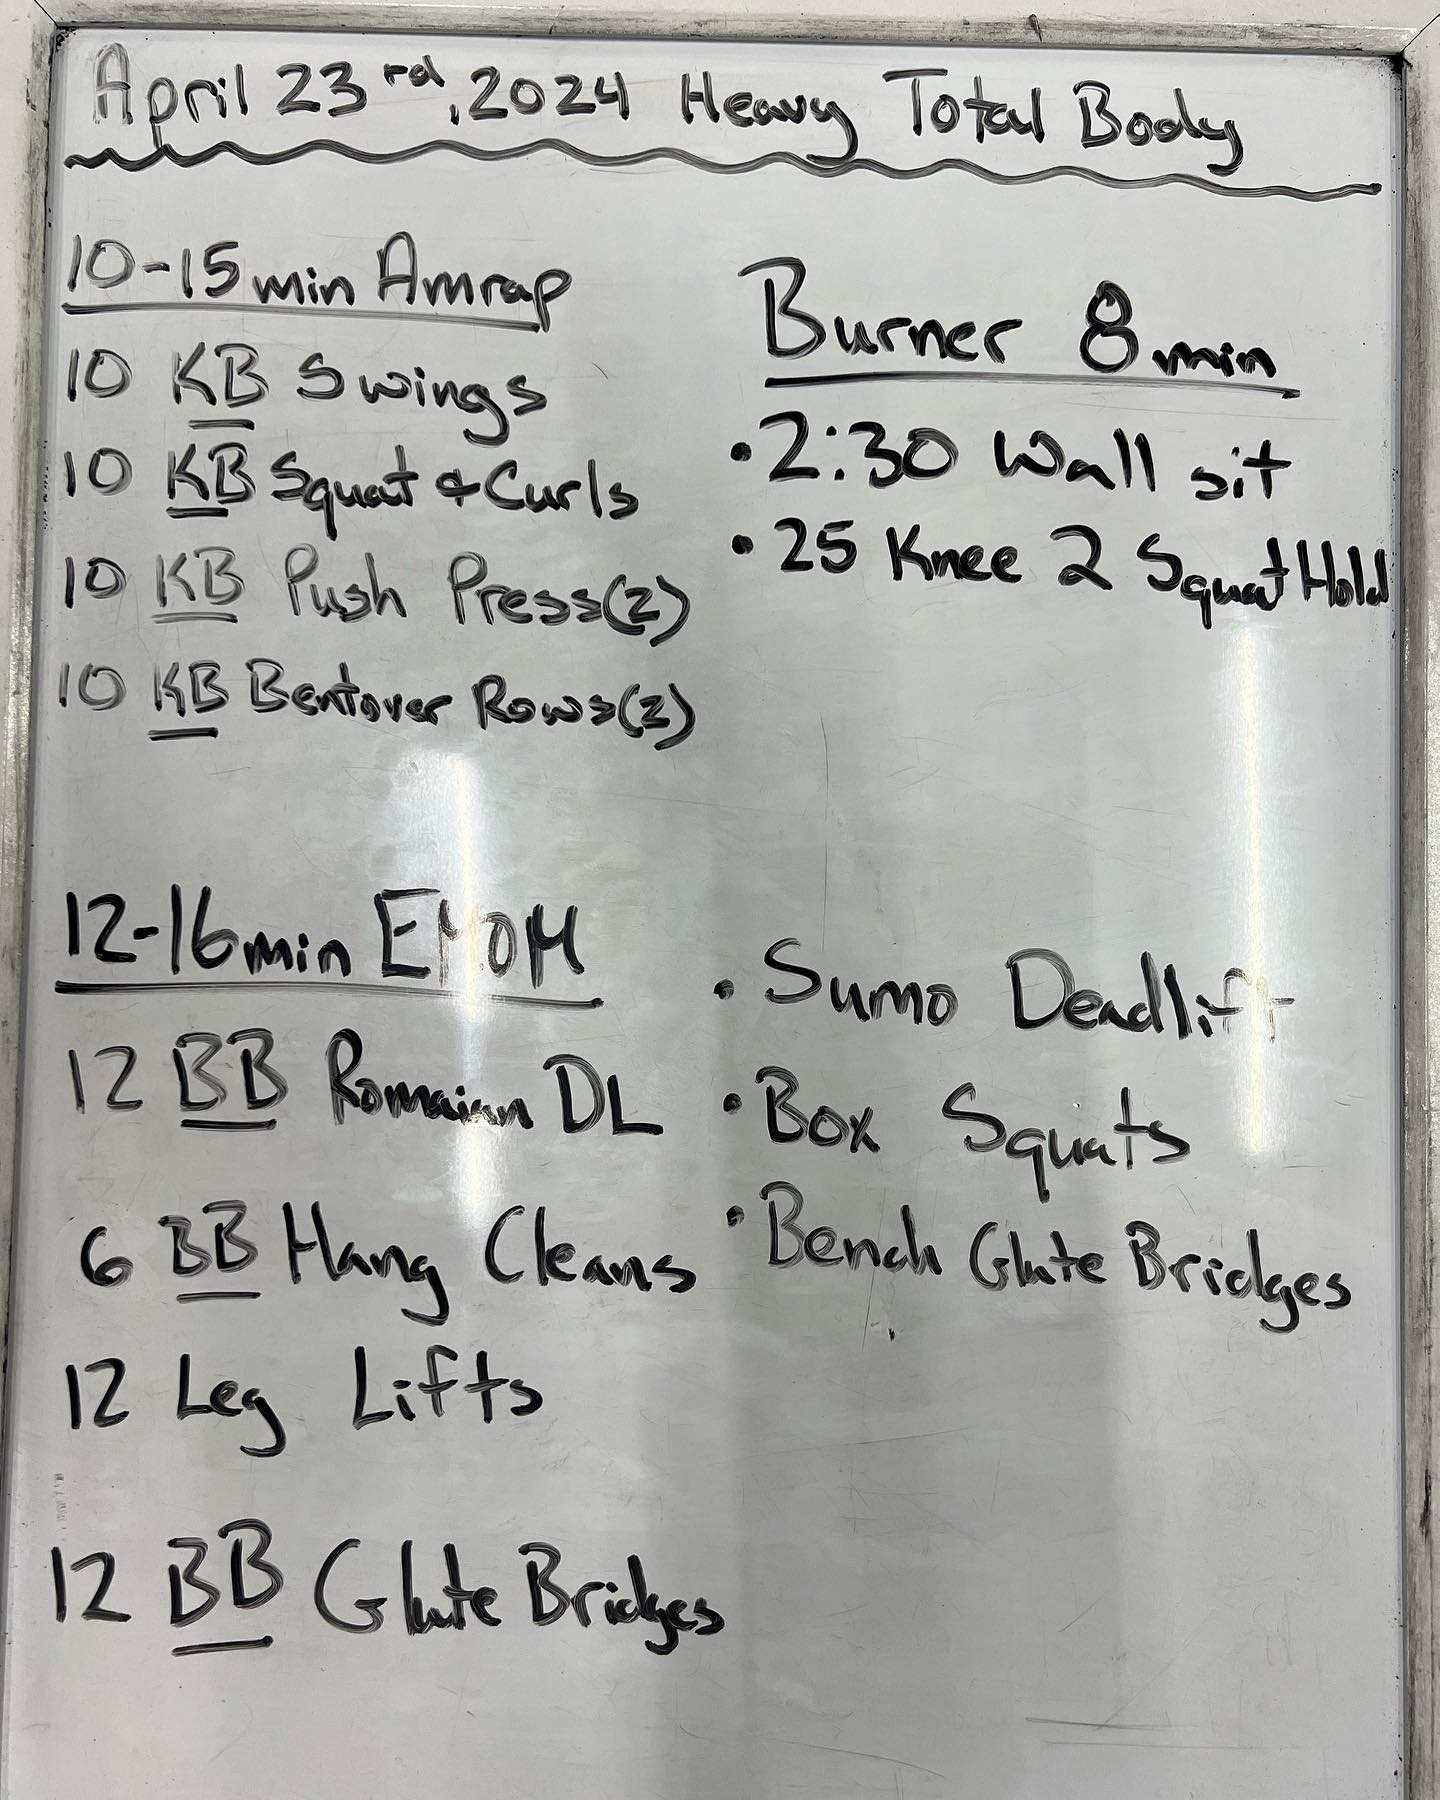 April 23rd, 2024 Heavy Total Body
10-15min Amrap
10 KB Swings
10 KB Squat & Curls
10 KB Push Press(2)
10 KB Bentover Rows(2)
Burner 8min
• 2:30 Wall sit
• 25 Knee 2 Squat Hold
12-16min EMOM
12 BB Romaian DL
6 BB Hang Cleans
12 Leg Lifts
12 BB Glute Bridges
• Sumo Deadlift
• Box Squats
• Bench Glute Bridges